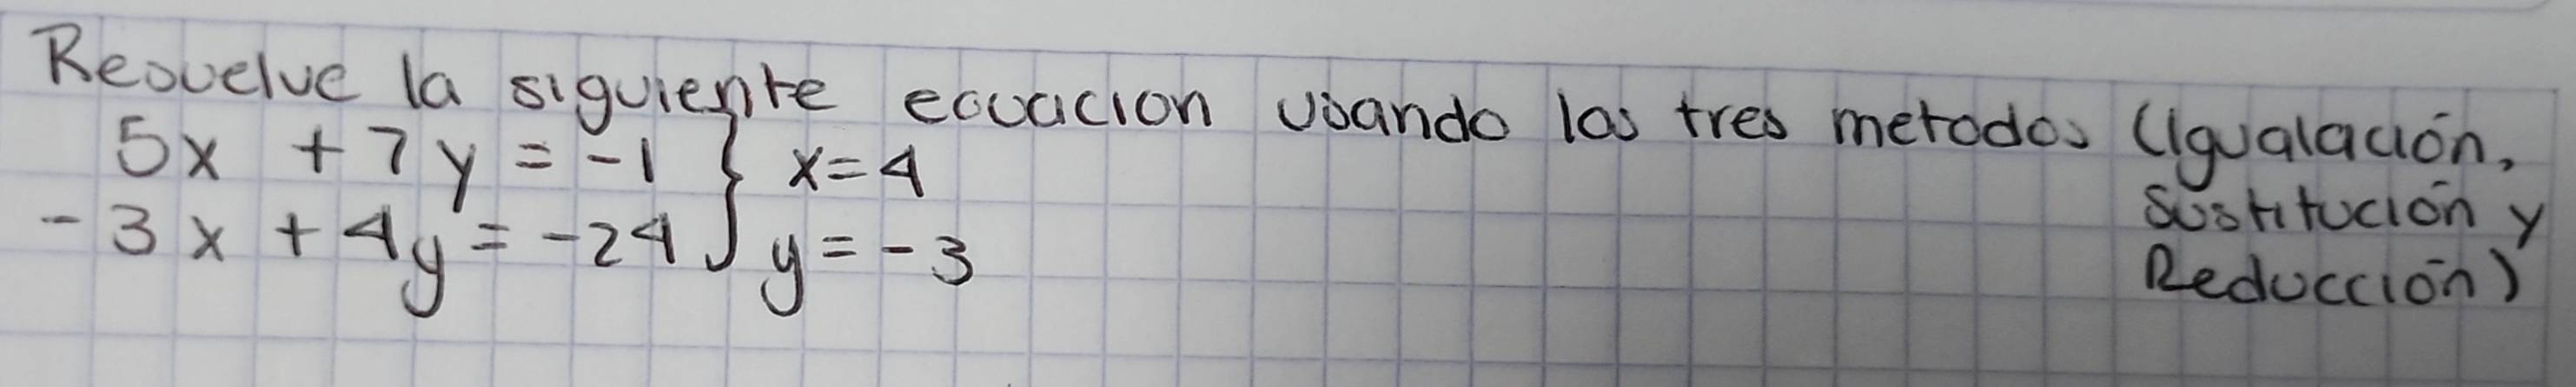 Resuelve la siguiente ecuacion usando los tres metodos (Igualación,
Sustitución y
Reducción)
5x + 7y = -1 } x=4
-3x + 4y = -24 } y = -3